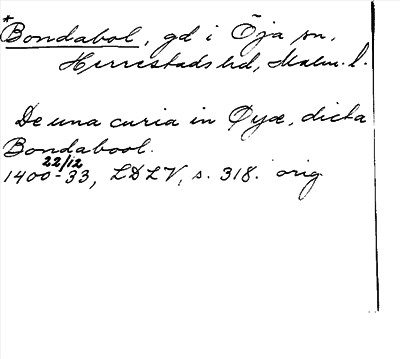 *Bondabol, gd i Öja sn,
Herrestads hd, Malm. l.
De una curia in Øyæ, dicta
Bondabool.
22/12
1400-33, LDLV, s. 318. orig